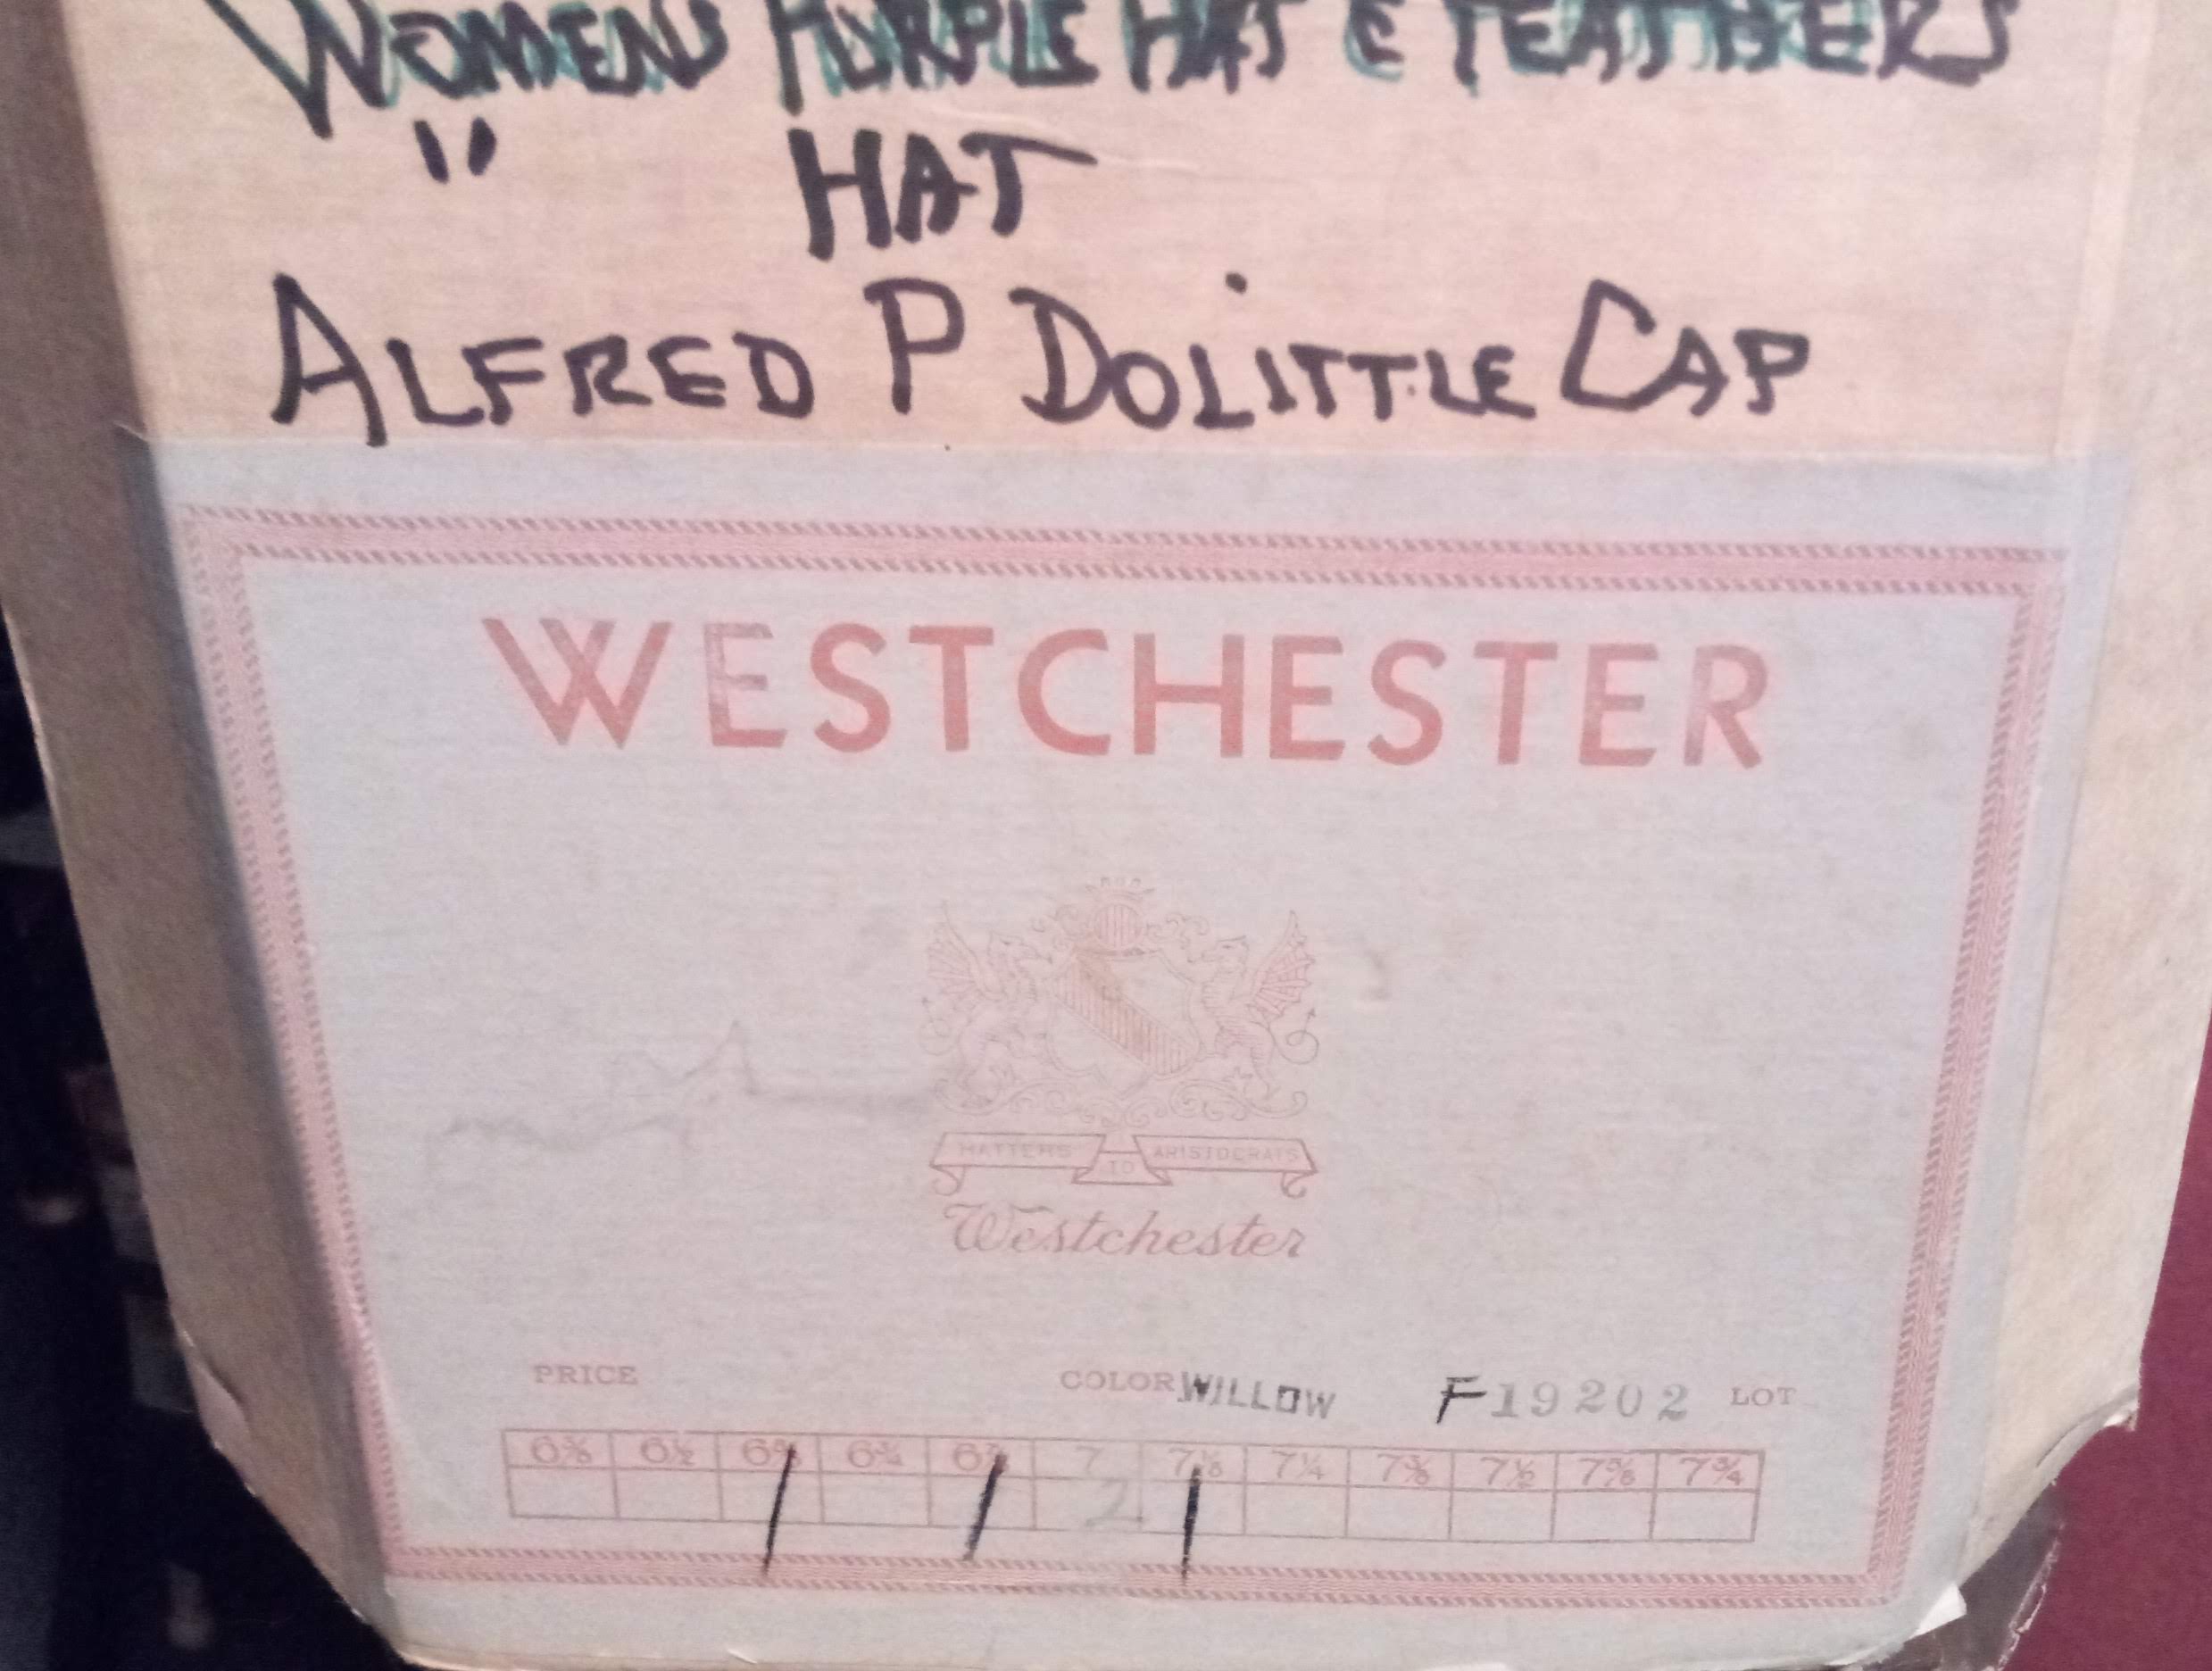 WOMENS PURPLE HAT C FEATHERS
" HAT
ALFRED P DOLITTLE CAP
WESTCHESTER
HATTERS TO ARISTOCRATS
Westchester
PRICE COLOR WILLOW F19202 LOT
6⅜ 6½ 6⅝ 6¾ 6⅞ 7 7⅛ 7¼ 7⅜ 7½ 7⅝ 7¾
/ / 2 /